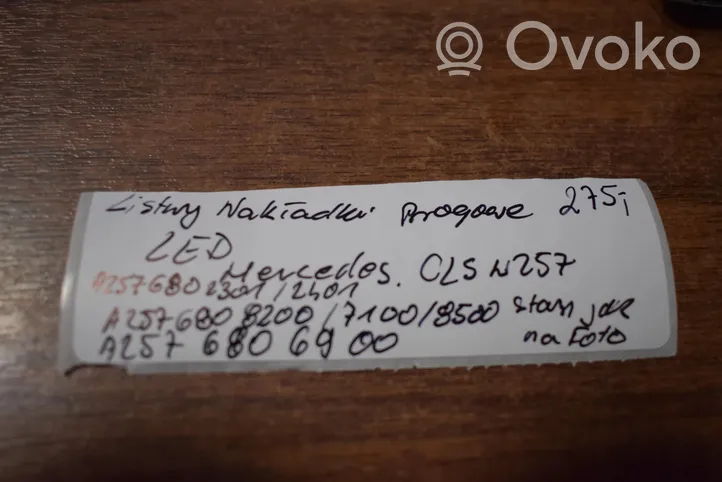 Ovoko
Listwy Nakładki Progowe 275;
LED
Mercedes. CLS W257
A257680 2301/2401
A257680 8200/7100/8500 stan jak
A257 680 6900 na Foto